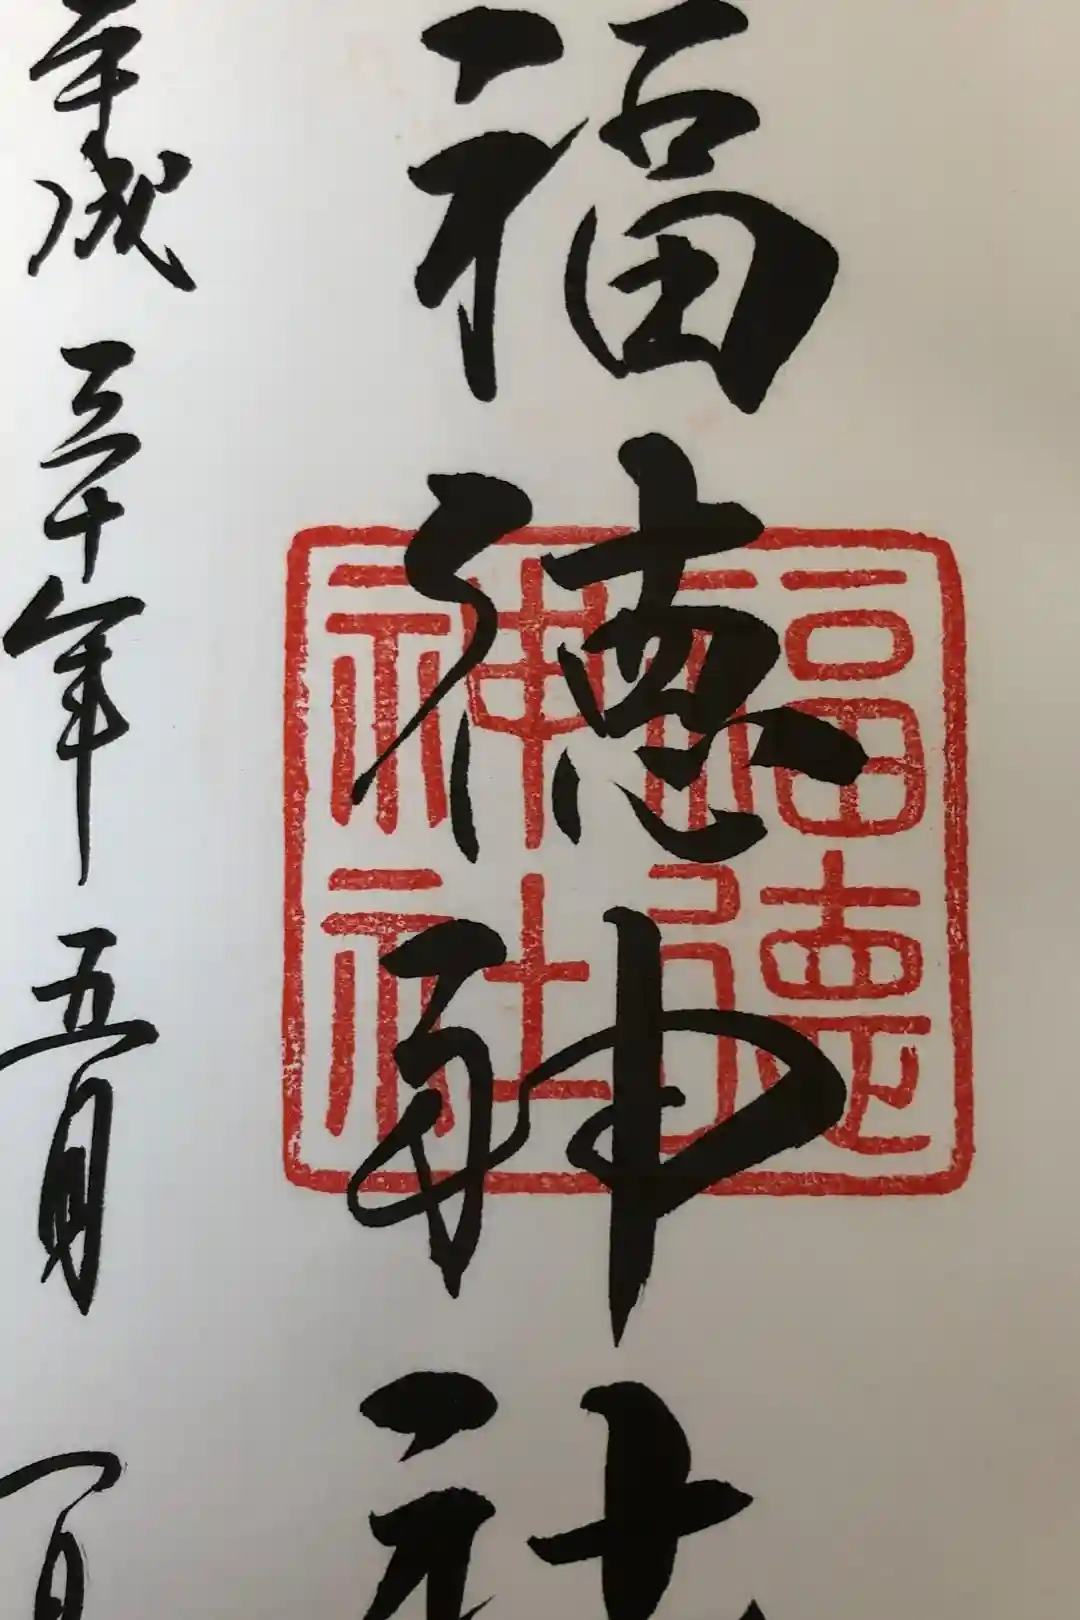 福徳神社
福徳神社
平成三十年五月一日